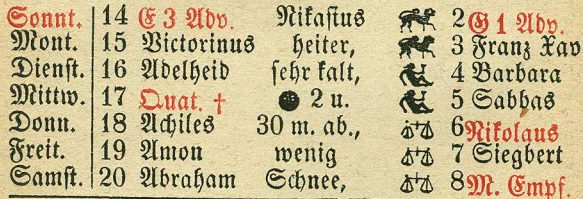 Sonnt. 14 E 3 Adv. Nikasius 2 G 1 Adv.
Mont. 15 Victorinus heiter, 3 Franz Xav
Dienst. 16 Adelheid sehr kalt, 4 Barbara
Mittw. 17 Quat. † 2 u. 5 Sabbas
Donn. 18 Achiles 30 m. ab., 6 Nikolaus
Freit. 19 Amon wenig 7 Siegbert
Samst. 20 Abraham Schnee, 8 M. Empf.